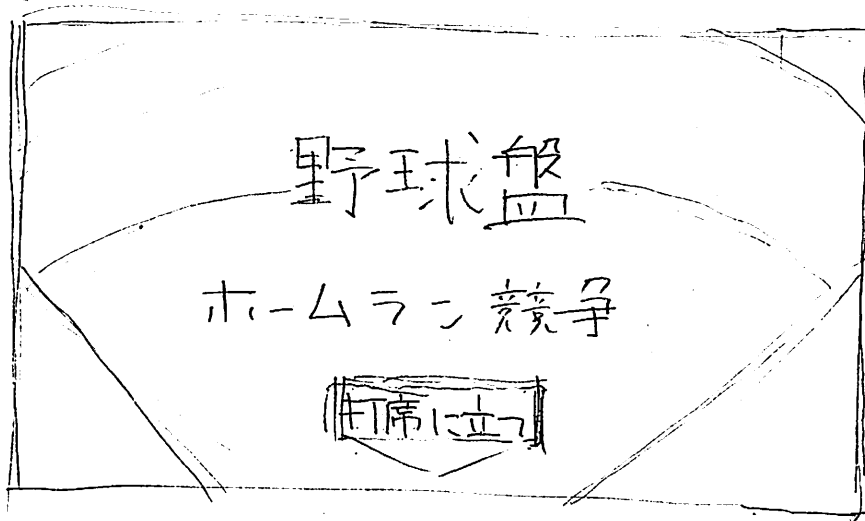 野球盤
ホームラン競争
打席に立つ